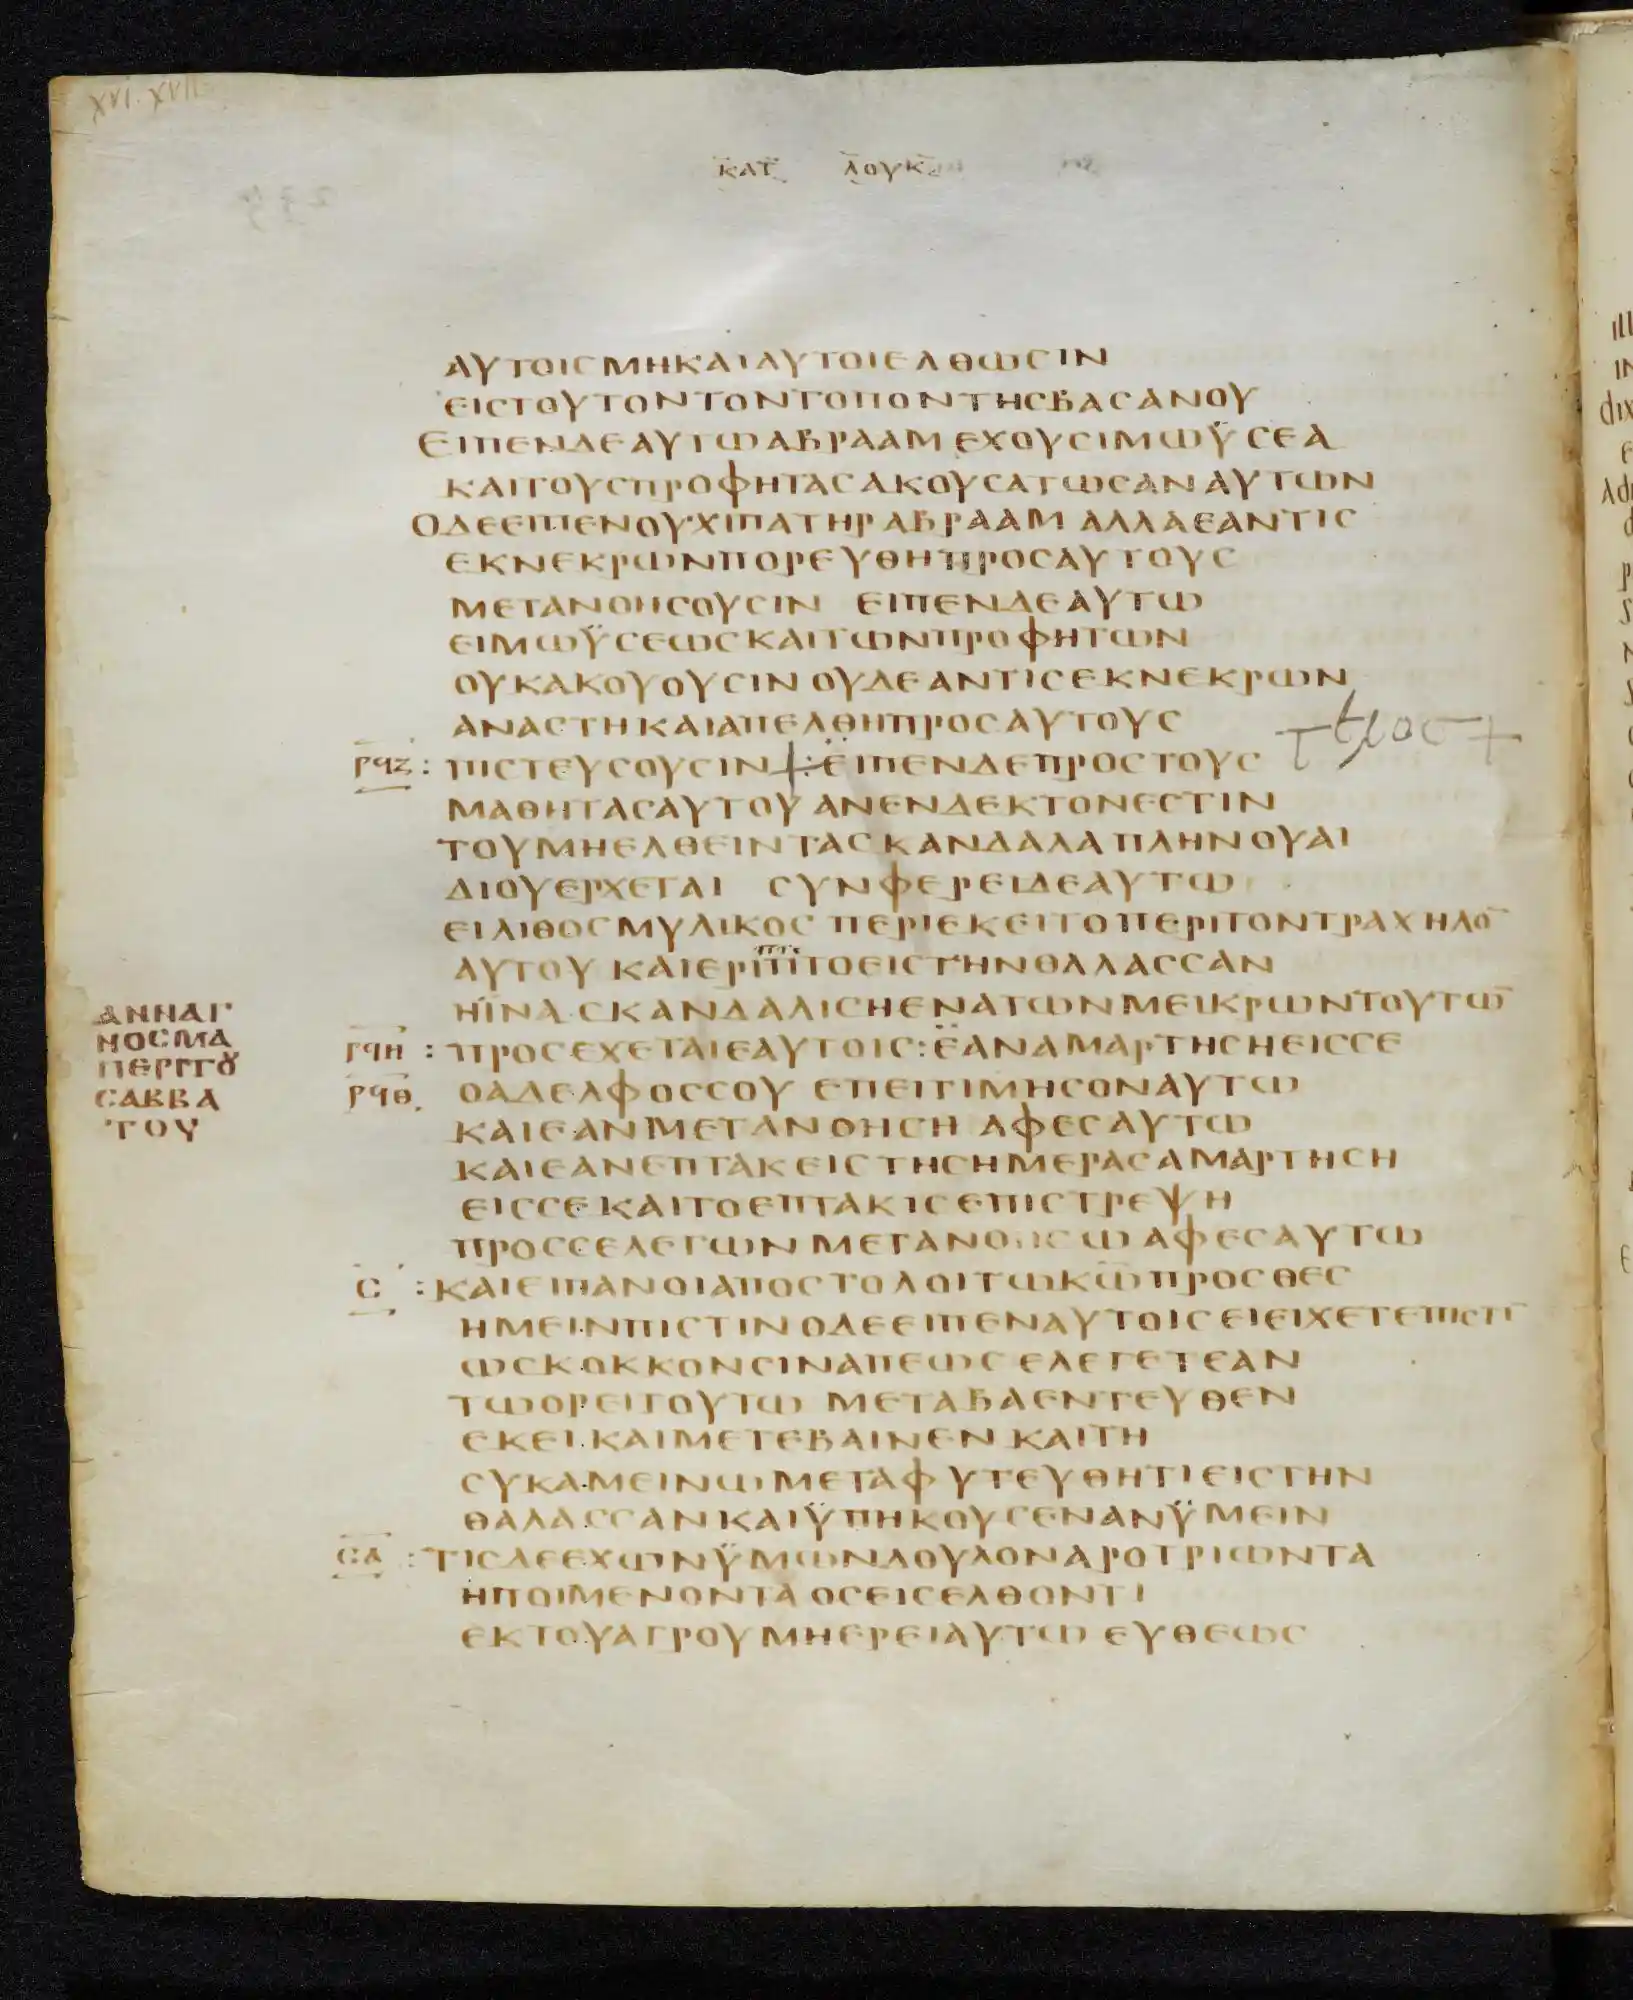 XVI. XVII
ΚΑΤ ΛΟΥΚ
ΑΥΤΟΙСΜΗΚΑΙΑΥΤΟΙΕΛΘΩСΙΝ
ΕΙСΤΟΥΤΟΝΤΟΝΤΟΠΟΝΤΗСΒΑСΑΝΟΥ
ΕΙΠΕΝΔΕΑΥΤΩΑΒΡΑΑΜ ΕΧΟΥСΙΜΩΫСΕΑ
ΚΑΙΤΟΥСΠΡΟΦΗΤΑСΑΚΟΥСΑΤΩСΑΝΑΥΤΩΝ
ΟΔΕΕΙΠΕΝΟΥΧΙΠΑΤΗΡΑΒΡΑΑΜ ΑΛΛΑΕΑΝΤΙС
ΕΚΝΕΚΡΩΝΠΟΡΕΥΘΗΠΡΟСΑΥΤΟΥС
ΜΕΤΑΝΟΗСΟΥСΙΝ ΕΙΠΕΝΔΕΑΥΤΩ
ΕΙΜΩΫСΕΩСΚΑΙΤΩΝΠΡΟΦΗΤΩΝ
ΟΥΚΑΚΟΥΟΥСΙΝ ΟΥΔΕΑΝΤΙСΕΚΝΕΚΡΩΝ
ΑΝΑСΤΗΚΑΙΑΠΕΛΘΗΠΡΟСΑΥΤΟΥС
ΡϤΖ : ΠΙСΤΕΥСΟΥСΙΝ : ΕΙΠΕΝΔΕΠΡΟСΤΟΥС
ΜΑΘΗΤΑСΑΥΤΟΥ ΑΝΕΝΔΕΚΤΟΝΕСΤΙΝ
ΤΟΥΜΗΕΛΘΕΙΝΤΑСΚΑΝΔΑΛΑ ΠΛΗΝΟΥΑΙ
ΔΙΟΥΕΡΧΕΤΑΙ СΥΝΦΕΡΕΙΔΕΑΥΤΩ
ΕΙΛΙΘΟСΜΥΛΙΚΟС ΠΕΡΙΕΚΕΙΤΟΠΕΡΙΤΟΝΤΡΑΧΗΛΟ̅
ΑΥΤΟΥ ΚΑΙΕΡΙΠΤΟΕΙСΤΗΝΘΑΛΑССΑΝ
ΗΪΝΑ СΚΑΝΔΑΛΙСΗΕΝΑΤΩΝΜΕΙΚΡΩΝΤΟΥΤΩ̅
ΑΝΝΑΓ
ΝΟСΜΑ
ΠΕΡΙΤΟΥ
САΒΒΑ
ΤΟΥ
ΡϤΗ : ΠΡΟСΕΧΕΤΑΙΕΑΥΤΟΙС : ΕΑΝΑΜΑΡΤΗСΗΕΙССΕ
ΡϤΘ ΟΑΔΕΛΦΟССΟΥ ΕΠΕΙΤΙΜΗСΟΝΑΥΤΩ
ΚΑΙΕΑΝΜΕΤΑΝΟΗСΗ ΑΦΕСΑΥΤΩ
ΚΑΙΕΑΝΕΠΤΑΚΕΙСΤΗСΗΜΕΡΑСΑΜΑΡΤΗСΗ
ΕΙССΕΚΑΙΤΟΕΠΤΑΚΙСΕΠΙСΤΡΕΨΗ
ΠΡΟССΕΛΕΓΩΝ ΜΕΤΑΝΟΗСΩ ΑΦΕСΑΥΤΩ
С : ΚΑΙΕΙΠΑΝΟΙΑΠΟСΤΟΛΟΙΤΩΚΩ̅ΠΡΟСΘΕС
ΗΜΕΙΝΠΙСΤΙΝ ΟΔΕΕΙΠΕΝΑΥΤΟΙСΕΙΕΙΧΕΤΕΠΙСΤΙ̅
ΩСΚΟΚΚΟΝСΙΝΑΠΕΩС ΕΛΕΓΕΤΕΑΝ
ΤΩΟΡΕΙΤΟΥΤΩ ΜΕΤΑΒΑΕΝΤΕΥΘΕΝ
ΕΚΕΙ ΚΑΙΜΕΤΕΒΑΙΝΕΝ ΚΑΙΤΗ
СΥΚΑΜΕΙΝΩΜΕΤΑΦΥΤΕΥΘΗΤΙΕΙСΤΗΝ
ΘΑΛΑССΑΝΚΑΙΫΠΗΚΟΥСΕΝΑΝΫΜΕΙΝ
СΑ : ΤΙСΔΕΕΧΩΝΫΜΩΝΔΟΥΛΟΝΑΡΟΤΡΙΩΝΤΑ
ΗΠΟΙΜΕΝΟΝΤΑ ΟСΕΙСΕΛΘΟΝΤΙ
ΕΚΤΟΥΑΓΡΟΥΜΗΕΡΕΙΑΥΤΩ ΕΥΘΕΩС